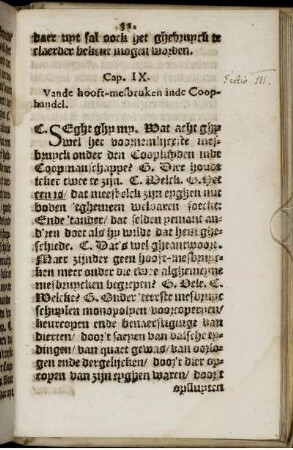 33.
daer uyt sal oock het ghebruyck te
claerder bekent mogen worden.
Cap. IX.
Vande hooft-mesbruken inde Coop-
handel.
C. SEght ghy my. Wat acht ghy
wel het voornemlijcste mes-
bruyck onder den Coopluyden inde
Coopmanschappe? G. Vier
icker twee te zijn. C. Welck. G. Het
een is/ dat meest elck zijn eyghen nut
boven 'tghemeen welvaren soecke:
Ende 'tander/ dat selden yemant an-
dren doet als hy wilde dat hem ghe-
schiede. C. Dat's wel gheantwoort.
Maer zijnder geen hooft-mesbruyc-
ken meer onder die twee alghemeyne
mesbruycken begrepen? G. Vele. C.
Welcke? G. Onder 'teerste mesbruyc
schuylen monopolyen voorcoperyen/
keurcopen ende benaerstiginge van
dierten/ door't saeyen van valsche ty-
dingen/ van quaet gewas/ van oorlo-
gen ende dergelijcken/ door't dier op-
copen van zijn eyghen waren/ door't
opsluyten